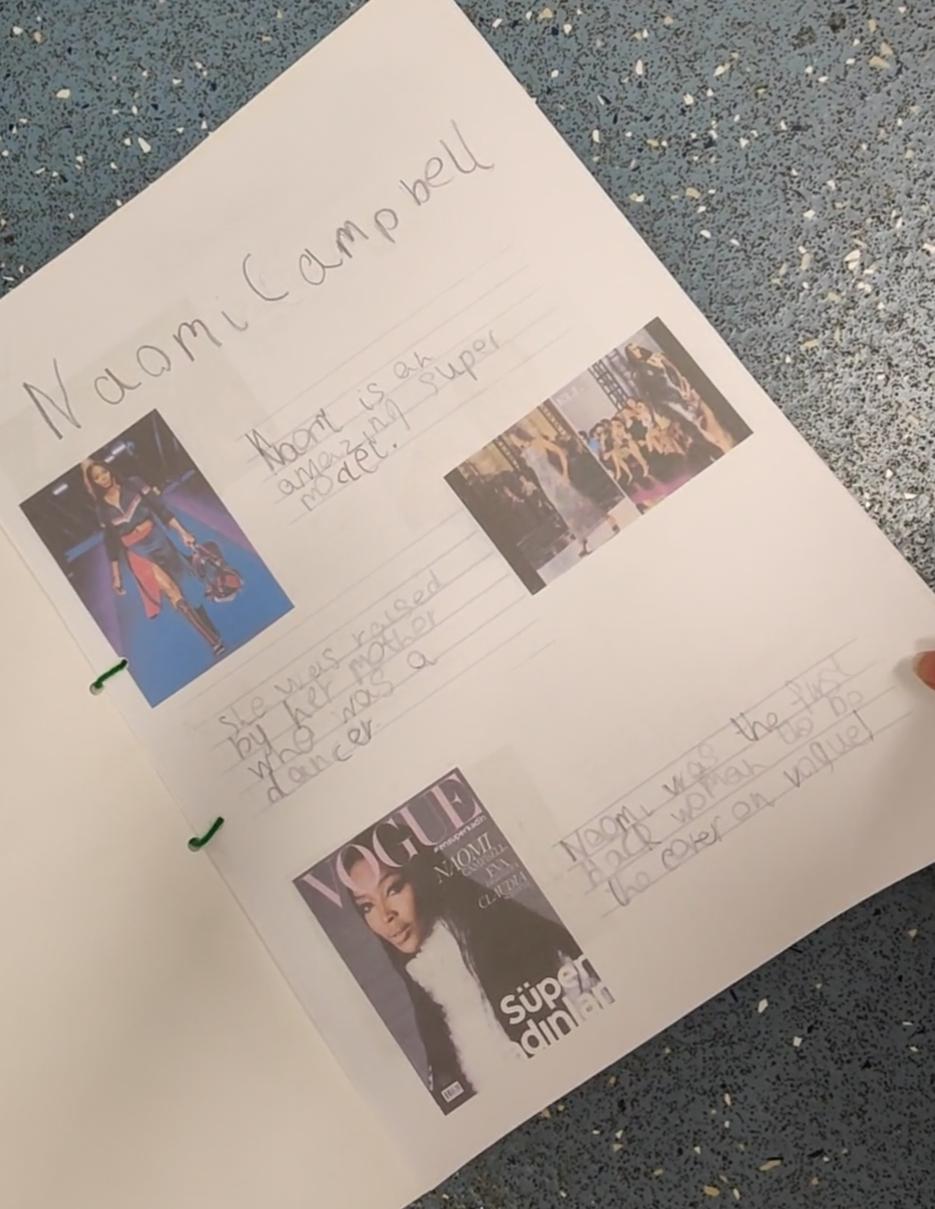 Naomi Campbell
Naomi is an
amazing super
model.
she was raised
by her mother
who was a
dancer.
VOGUE
#ensüperkadın
NAOMI
CAMPBELL
EVA
CLAUDIA
Süper
adınlar
Naomi was the first
black woman to be
the cover on vogue!